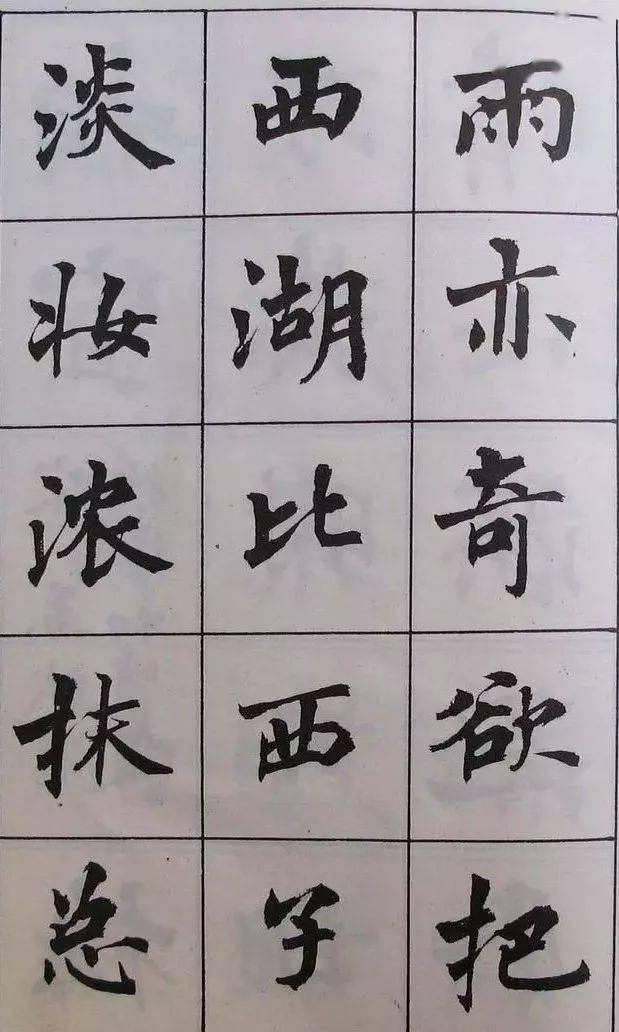 雨亦奇欲把
西湖比西子
淡妆浓抹总